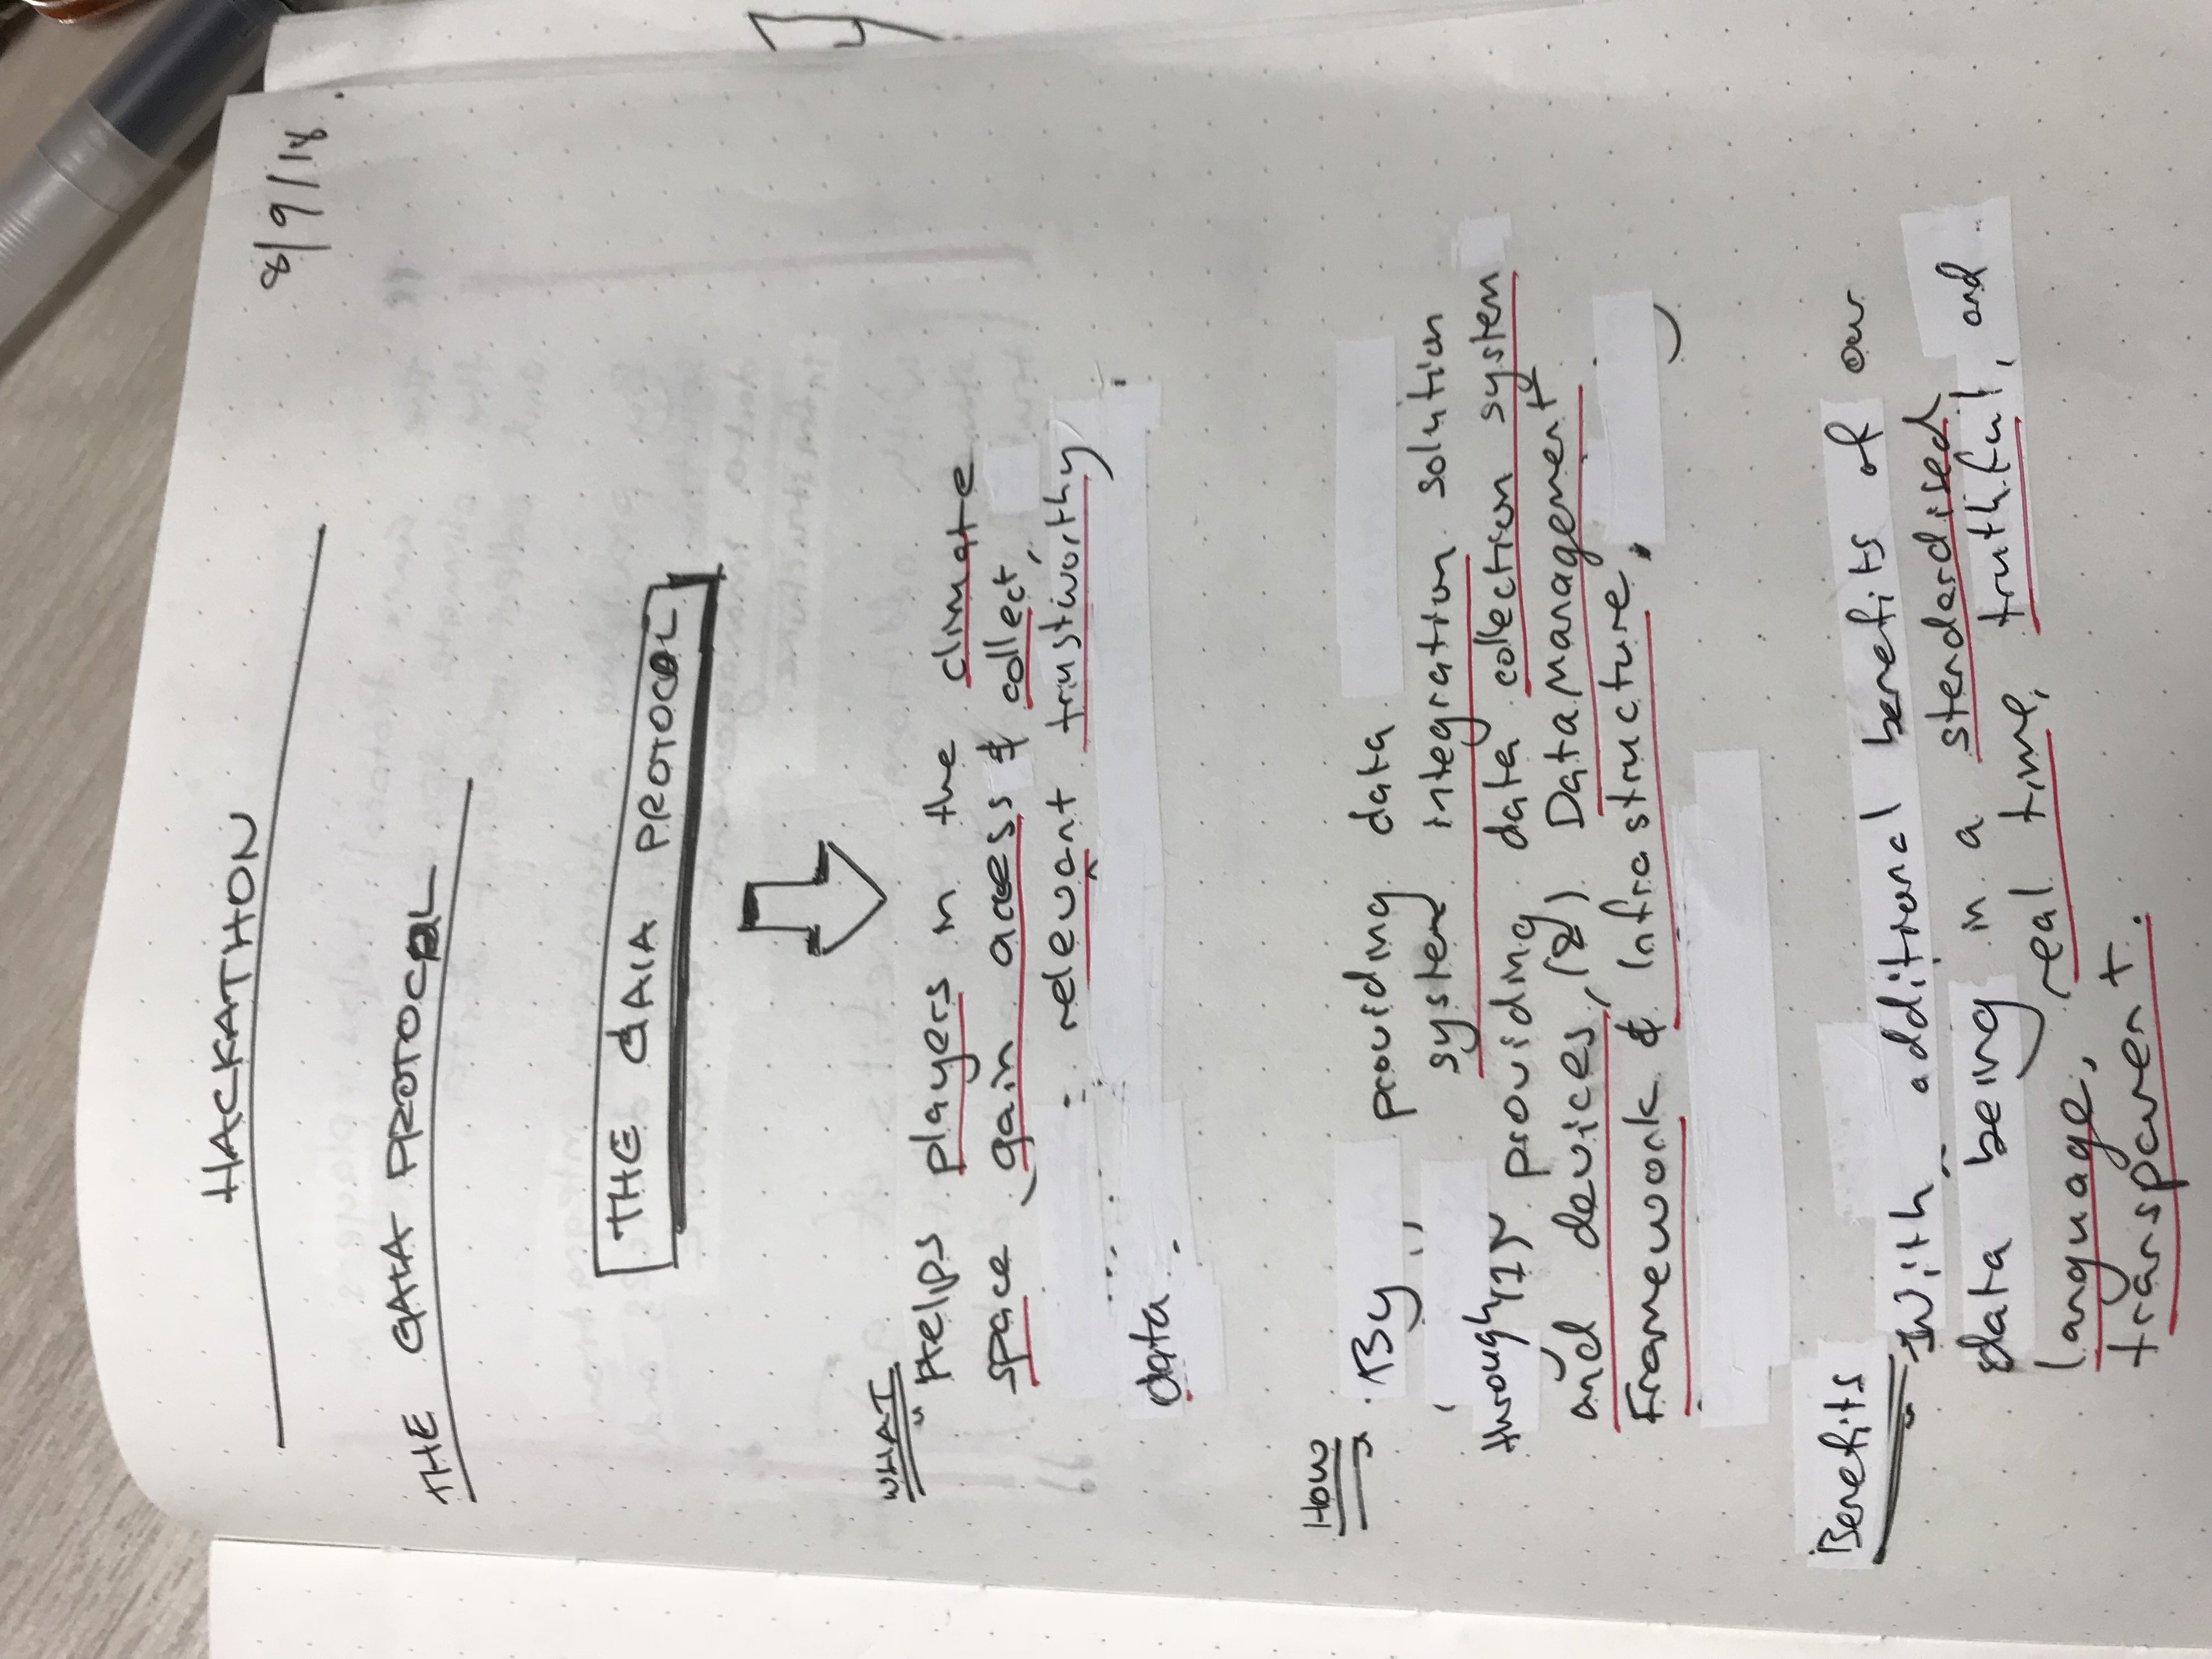 8/9/18
HACKATHON
THE GAIA PROTOCOL
THE GAIA PROTOCOL
WHAT
Helps players in the climate
space gain access & collect,
relevant trustworthy
data.
HOW
By providing data
system integration solution
through (1) providing data collection system
and devices, (2) Data Management
Framework & Infrastructure.
Benefits
With additional benefits of our
data being in a standardised
language, real time, truthful, and
transparent.